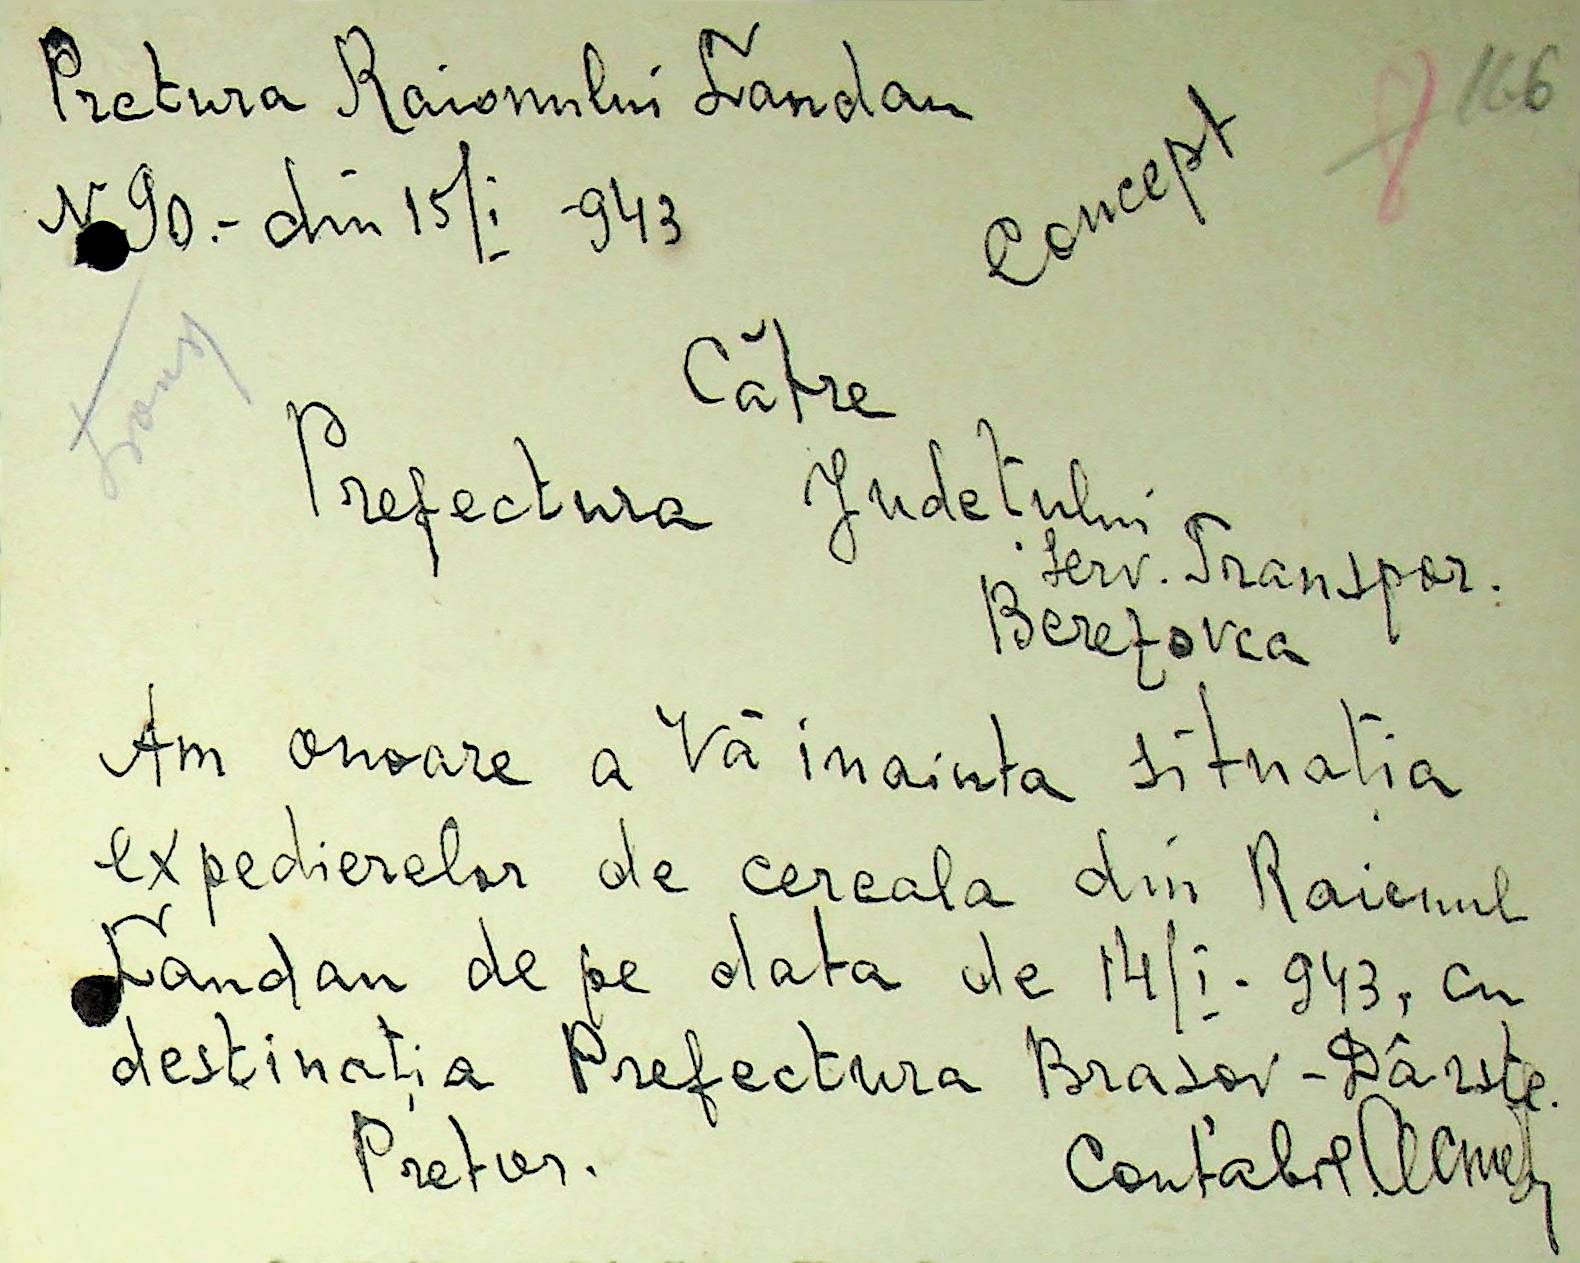 Pretura Raionului Landau
166
N 90.- din 15/I 943
Concept
Către
Prefectura Judetului
Serv. Transpor.
Berezovca
Am onoare a Vă inainta situația
expedierelor de cereala din Raionul
Landau de pe data de 14/I. 943, cu
destinația Prefectura Brasov - Dârste.
Pretor.
Contabil